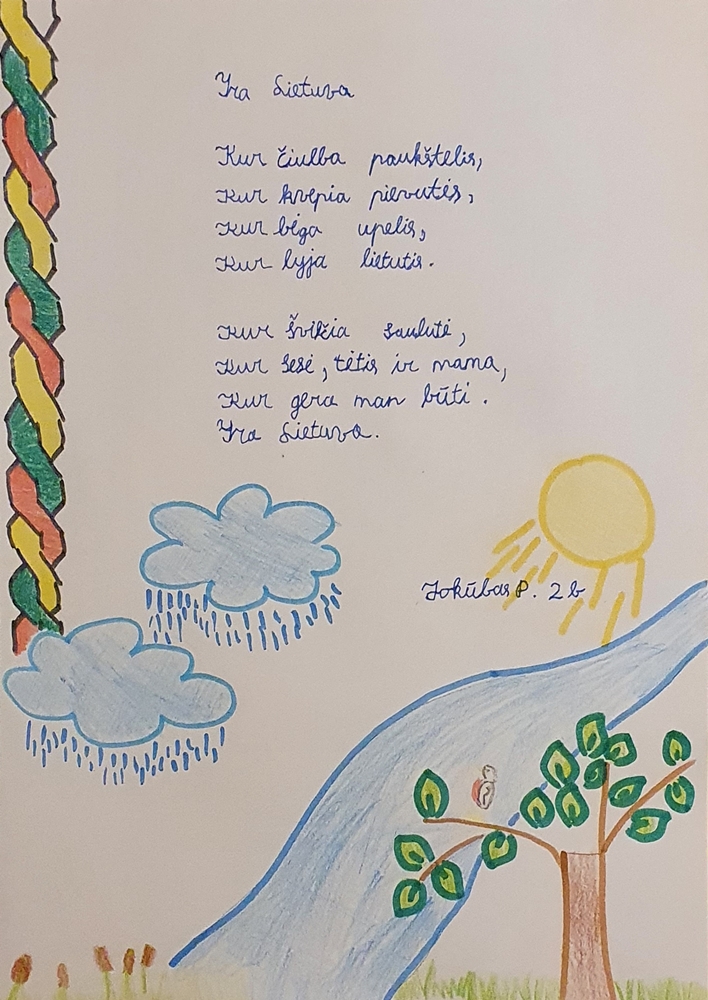 Yra Lietuva
Kur čiulba paukštelis,
Kur kvepia pievutės,
Kur bėga upelis,
Kur lyja lietutis.
Kur švičia saulutė,
Kur sesė, tėtis ir mama,
Kur gera man būti.
Yra Lietuva.
Jokūbas P. 2b